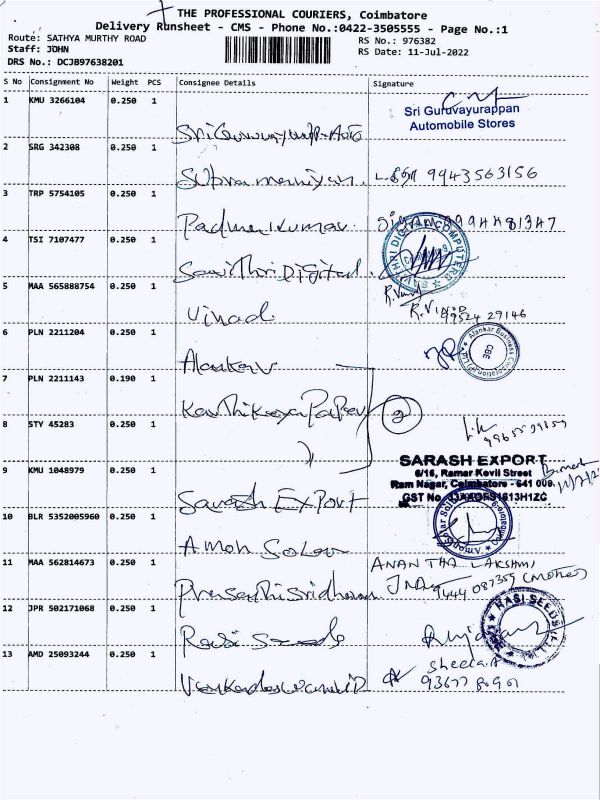 THE PROFESSIONAL COURIERS, Coimbatore
Delivery Runsheet - CMS - Phone No.:0422-3505555 - Page No.:1
Route: SATHYA MURTHY ROAD
Staff: JOHN
DRS No.: DCJB97638201
RS No.: 976382
RS Date: 11-Jul-2022
S No Consignment No Weight PCS Consignee Details Signature
1 KMU 3266104 0.250 1
Sri Guruvayurappan
Automobile Stores
Sri Guruvayurapp. Auto
2 SRG 342308 0.250 1
Subramaniyan. 9943563156
3 TRP 5754105 0.250 1
Padmakumar
4 TSI 7107477 0.250 1
SAVITHRI DIGITAL COMPUTERS
Savithri Digital
5 MAA 565888754 0.250 1
R. Vinod
99524 29146
Vinod
6 PLN 2211204 0.250 1
Alankar Business Corporation (P) Ltd.
CBE
Alankar
7 PLN 2211143 0.190 1
Karthikeya Paper 2
8 STY 45283 0.250 1
9 KMU 1048979 0.250 1
SARASH EXPORT
6/16, Ramar Kovil Street
Ram Nagar, Coimbatore - 641 009.
GST No
Sarash Export
10 BLR 5352005960 0.250 1
Amon Solar
11 MAA 562814673 0.250 1
ANANTHA LAKSHMI
9444 087359 (Mother)
Prasathsridharan
12 JPR 502171068 0.250 1
RASI SEEDS
Rasi Seeds
13 AMD 25093244 0.250 1
Sheela.A
Venkadeswari D